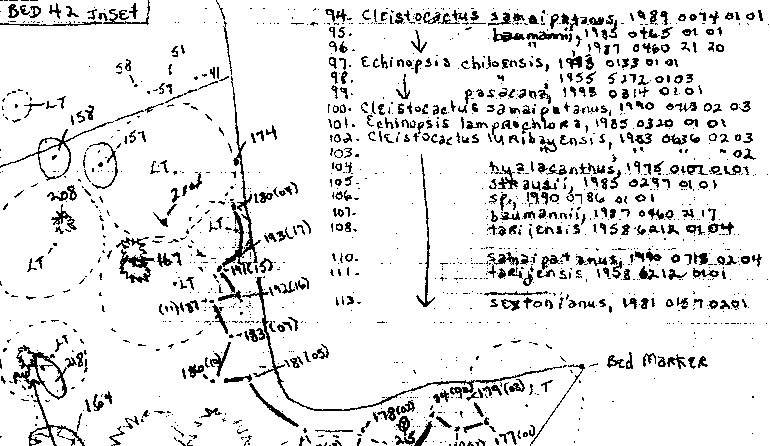 BED 42 INSET
94. Cleistocactus samaipatanus, 1989 0074 01 01
95. baumannii, 1985 0465 01 01
96. " , 1987 0460 21 20
97. Echinopsis chiloensis, 0133 01 01
98. " 1955 5272 01 03
99. pasacana, 0314 01 01
100. Cleistocactus samaipatanus, 1990 0713 02 03
101. Echinopsis lamprochlora, 1985 0320 01 01
102. Cleistocactus 1983 0636 02 03
103. " " " 02
104. hyalacanthus, 1975 0107 01 01
105. strausii, 1985 0297 01 01
106. sp., 1990 0786 01 01
107. baumannii, 1987 0460 21 17
108. tarijensis 1958 6212 01 04
110. samaipatanus, 1990 0713 02 04
111. tarijensis, 1958 6212 01 01
113. sextonianus, 1981 0157 02 01
51
58
59
41
LT
158
157
174
LT
208
180(04)
LT
193(17)
LT
167
191(15)
LT
192(16)
(11)187
183(07)
186(10)
181(05)
LT
218
164
Bed Marker
178(02)
179(03)
LT
177(01)